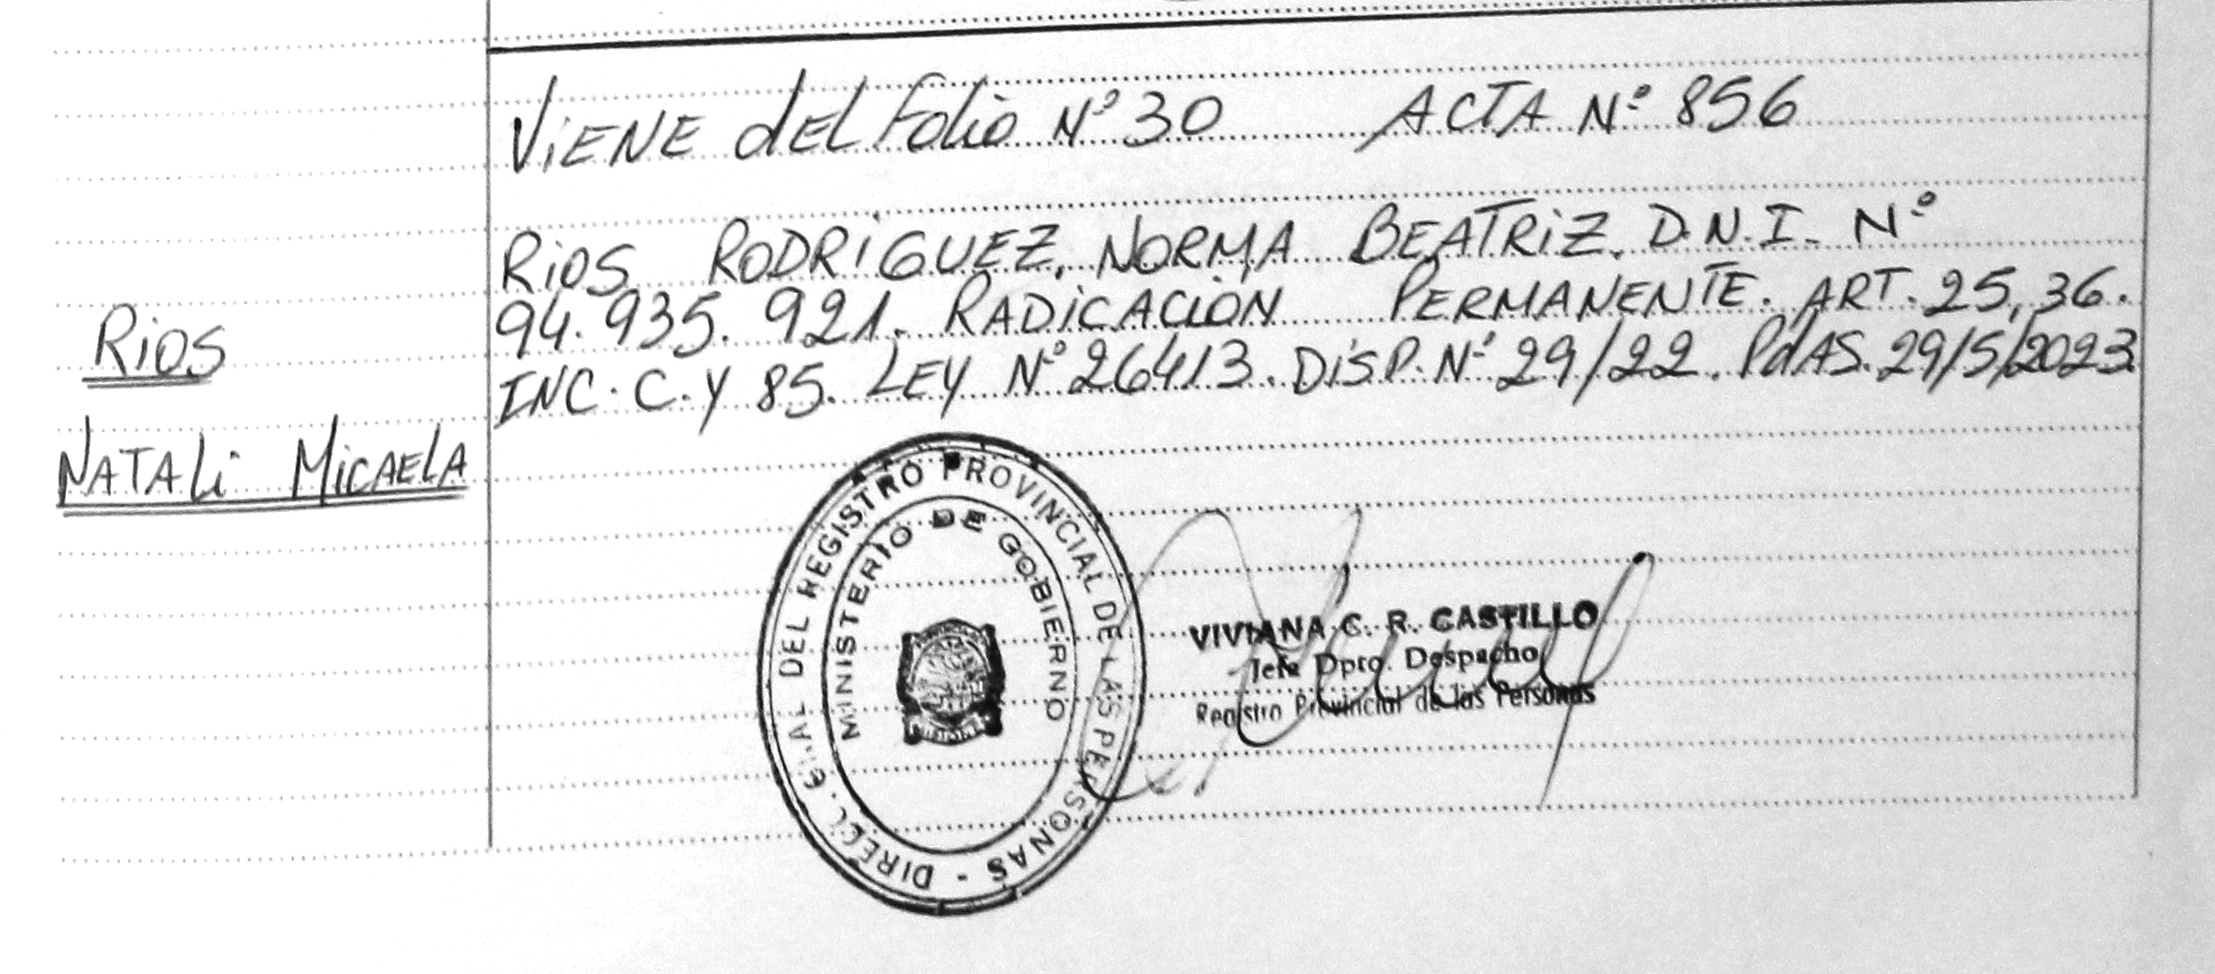 ViENE dEL Folio Nº 30 ACTA Nº 856
RiOS RODRiGUEZ, NORMA BEATRiZ. D.N.I. Nº
94.935.921. RADiCACiON PERMANENTE. ART. 25, 36.
INC. C. Y 85. LEY Nº 26413. DiSP. Nº 29/22. PdAS. 29/5/2023
RiOS
NATALi MiCAELA
DIRECC. GRAL DEL REGISTRO PROVINCIAL DE LAS PERSONAS -
MINISTERIO DE GOBIERNO
VIVIANA C. R. CASTILLO
Jefa Dpto. Despacho
Registro Provincial de las Personas